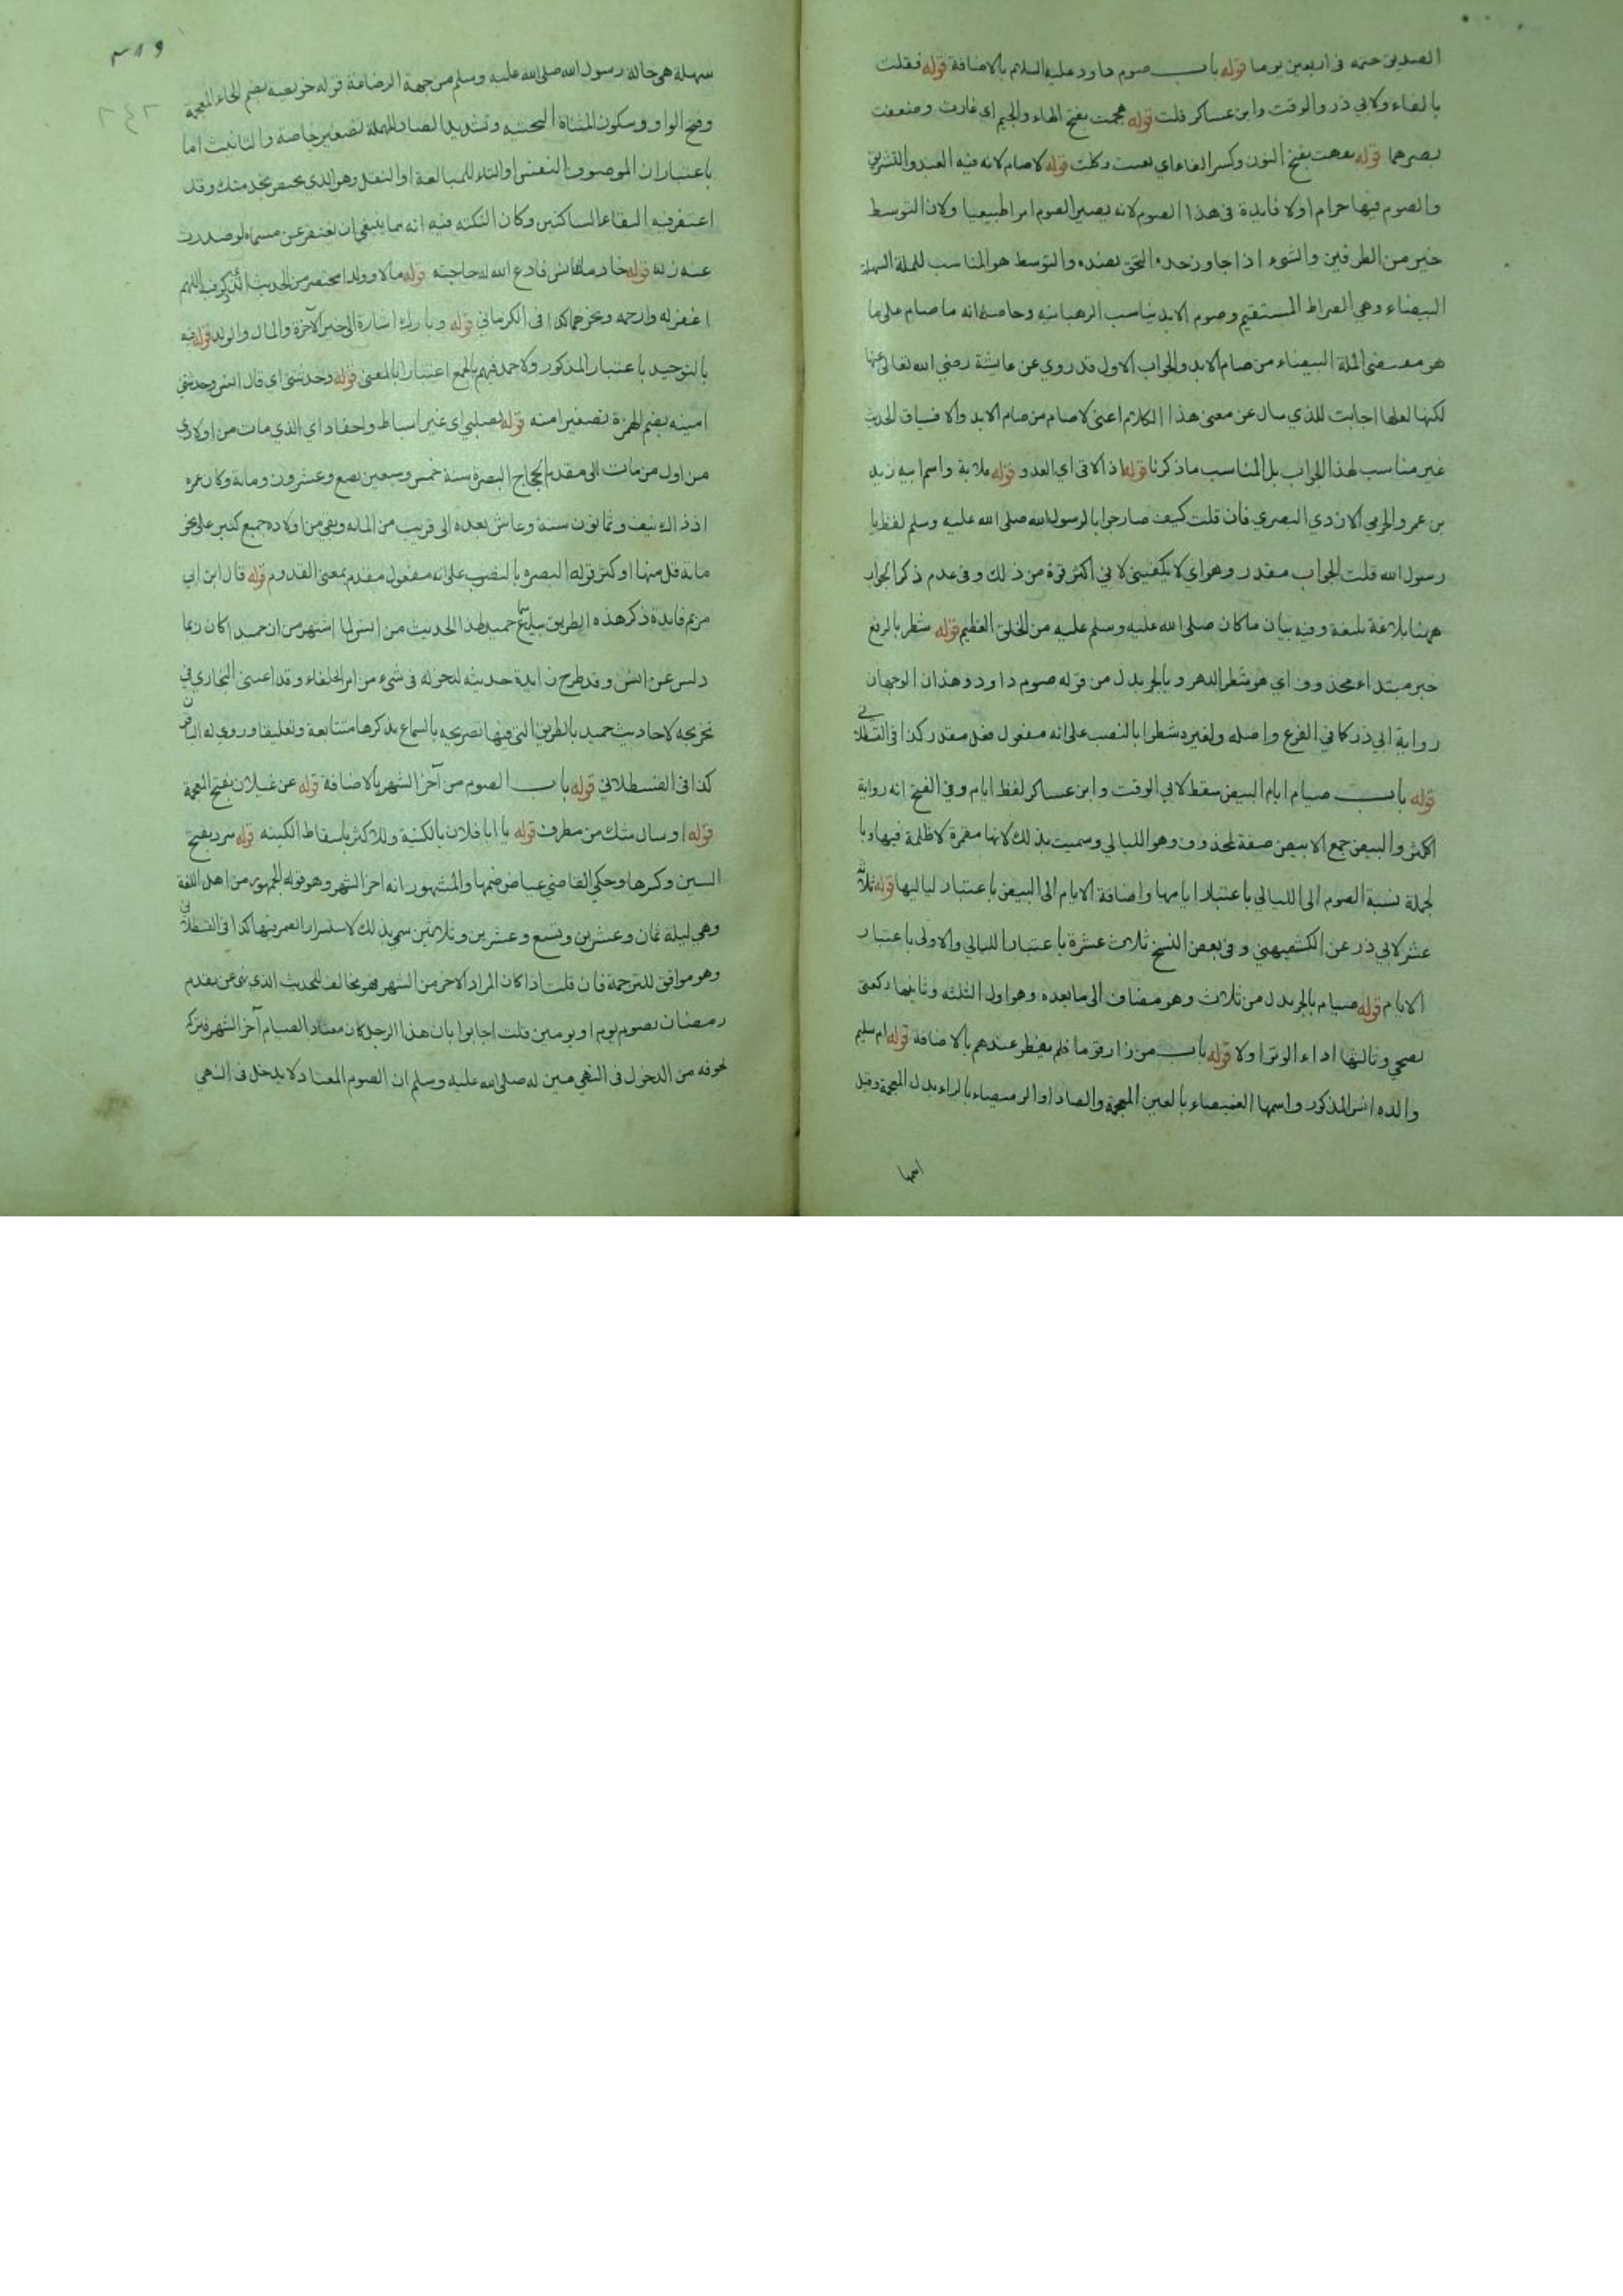 الصديق ختمه في اربعين يوما قوله باب صوم داود عليه السلام بالاضافة قوله فقلت
بالفاء ولابي ذر والوقت وابن عساكر قلت قوله هجمت بفتح الهاء والجيم اي غارت وضعفت
بصرهما قوله نفهت بفتح النون وكسر الفاء اي تعبت وكلت قوله لا صام لانه فيه العيد والتشريق
والصوم فيها حرام اولا فايدة في هذا الصوم لانه يصير الصوم امرا طبيعيا ولان التوسط
خير من الطرفين والشيء اذا جاوز حده التحق بضده والتوسط هو المناسب للملة السهلة
البيضاء وهي الصراط المستقيم وصوم الابد يناسب الرهبانيه وحاصله انه ما صام على ما
هو مقتضى الملة البيضاء من صام الابد والجواب الاول قد روي عن عايشة رضي الله تعالى عنها
لكنها لعلها اجابت للذي سال عن معنى هذا الكلام اعنى لا صام من صام الابد والا فسياق الحديث
غير مناسب لهذا الجواب بل المناسب ما ذكرنا قوله اذا لاقى اي العدو قوله قلابة واسم ابيه زيد
بن عمرو الجرمي الازدي البصري فان قلت كيف صار جوابا لرسول الله صلى الله عليه وسلم لفظ يا
رسول الله قلت الجواب مقدر وهو اي لا يكفيني لاني اكثر قوة من ذلك وفي عدم ذكر الجواب
ههنا بلاغة بليغة وفيه بيان ما كان صلى الله عليه وسلم عليه من الخلق العظيم قوله شطر بالرفع
خبر مبتداء محذوف اي هو شطر الدهر وبالجر بدل من قوله صوم داود وهذان الوجهان
رواية ابي ذر كما في الفرع واصله ولغيره شطرا بالنصب على انه مفعول فعل مقدر كذا في القسطلاني
قوله باب صيام ايام البيض سقط لابي الوقت وابن عساكر لفظ ايام وفي الفتح انه رواية
الاكثر والبيض جمع الابيض صفة لمحذوف وهو الليالي وسميت بذلك لانها مقمرة لا ظلمة فيها وبا
لجملة نسبة الصوم الى الليالي باعتبار ايامها واضافة الايام الى البيض باعتبار لياليها قوله ثلاثة
عشر لابي ذر عن الكشميهني وفي بعض النسخ ثلاث عشرة باعتبار الليالي والاولى باعتبار
الايام قوله صيام بالجر بدل من ثلاث وهو مضاف الى ما بعده وهو اول الثلثه وثانيها ركعتي
الضحى وثالثها اداء الوتر اولا قوله باب من زار قوما فلم يفطر عندهم بالاضافة قوله ام سليم
والدة انس المذكور واسمها الغميصاء بالغين المعجمة والصاد او الرميصاء بالراء بدل المعجمة وقيل
اسمها
٣١٩
٢٤٢
سهلة هي خالة رسول الله صلى الله عليه وسلم من جهة الرضاعة قوله خويصة بضم الخاء المعجمة
وفتح الواو وسكون المثناة التحتيه وتشديد الصاد المهملة تصغير خاصة والتانيث اما
باعتبار ان الموصوف النفس او التاء للمبالغة او النقل وهو الذي يختص بخدمتك وقد
اغتفر فيه التقاء الساكنين وكان النكته فيه انه مما ينبغي ان يغتفر عن مسماه لو صدرت
عنه زلة قوله خادمك انس فادع الله له حاجته قوله مالا وولدا مختصر من الحديث المذكور فيه اللهم
اغفر له وارحمه ونحوهما كذا في الكرماني قوله وبارك اشارة الى خير الآخرة والمال والولد قوله فيه
بالتوحيد باعتبار المذكور ولاحمد فيهم بالجمع اعتبارا بالمعنى قوله وحدثتني اي قال انس وحدثتني
امينه بضم الهمزة تصغير امنه قوله لصلبي اي غير اسباط واحفاد اي الذي مات من اولادي
من اول من مات الى مقدم الحجاج البصرة سنة خمس وسبعين بضع وعشرون ومائة وكان عمره
اذ ذاك نيف وثمانون سنة وعاش بعده الى قريب من المائه وبقي من اولاده جميع كثير على نحو
مائة قل منها او كثر قوله البصره بالنصب على انه مفعول مقدم بمعنى القدوم قوله قال ابن ابي
مريم فايدة ذكر هذه الطريق بيان سماع حميد لهذا الحديث من انس لما اشتهر من ان حميدا كان ربما
دلس عن انس وقد طرح زايدة حديثه لدخوله في شيء من امر الخلفاء وقد اعتنى البخاري في
تخريجه لاحاديث حميد بالطريق التي فيها تصريحه بالسماع يذكرها متابعة وتعليقا وروي له الباقون
كذا في القسطلاني قوله باب الصوم من آخر الشهر بالاضافة قوله عن غيلان بفتح المعجمة
قوله او سال شك من مطرف قوله يا ابا فلان بالكنية وللاكثر باسقاط الكنيه قوله سرر بفتح
السين وكسرها وحكي القاضي عياض ضمها والمشهور انه اخر الشهر وهو قوله الجمهور من اهل اللغة
وهي ليلة ثمان وعشرين وتسع وعشرين وثلاثين سمي بذلك لاستسرار القمر فيها كذا في القسطلاني
وهو موافق للترجمة فان قلت اذا كان المراد الاخر من الشهر فهو مخالف للحديث الذي نهى عن تقدم
رمضان بصوم يوم او يومين قلت اجابوا بان هذا الرجل كان معتاد الصيام آخر الشهر فتركه
لخوفه من الدخول في النهي فبين له صلى الله عليه وسلم ان الصوم المعتاد لا يدخل في النهي